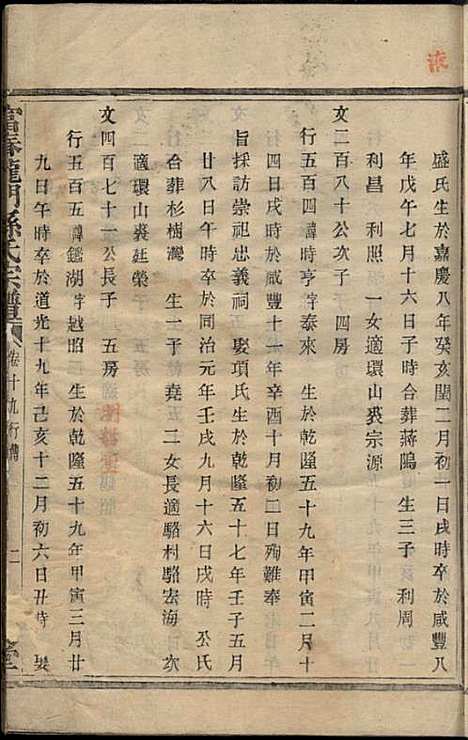 盛氏生於嘉慶八年癸亥閏二月初一日戌時卒於咸豐八
年戊午七月十六日子時合葬蔣塢　生三子　利周
利昌　利照　一女適環山裘宗源
文二百八十公次子　四房
行五百四諱時亨字泰來　生於乾隆五十九年甲寅二月十
四日戌時於咸豐十一年辛酉十月初二日殉難奉
旨採訪崇祖忠義祠　娶項氏生於乾隆五十七年壬子五月
廿八日午時卒於同治元年壬戌九月十六日戌時　公氏
合葬杉樹灣　生一子　堯五　二女長適駱村駱宏海　次
適環山裘廷榮
文四百七十一公長子　五房
行五百五諱鑑湖字越昭　生於乾隆五十九年甲寅三月廿
九日午時卒於道光十九年己亥十二月初六日丑時　娶
富春龍門孫氏宗譜　卷十九行傳　二